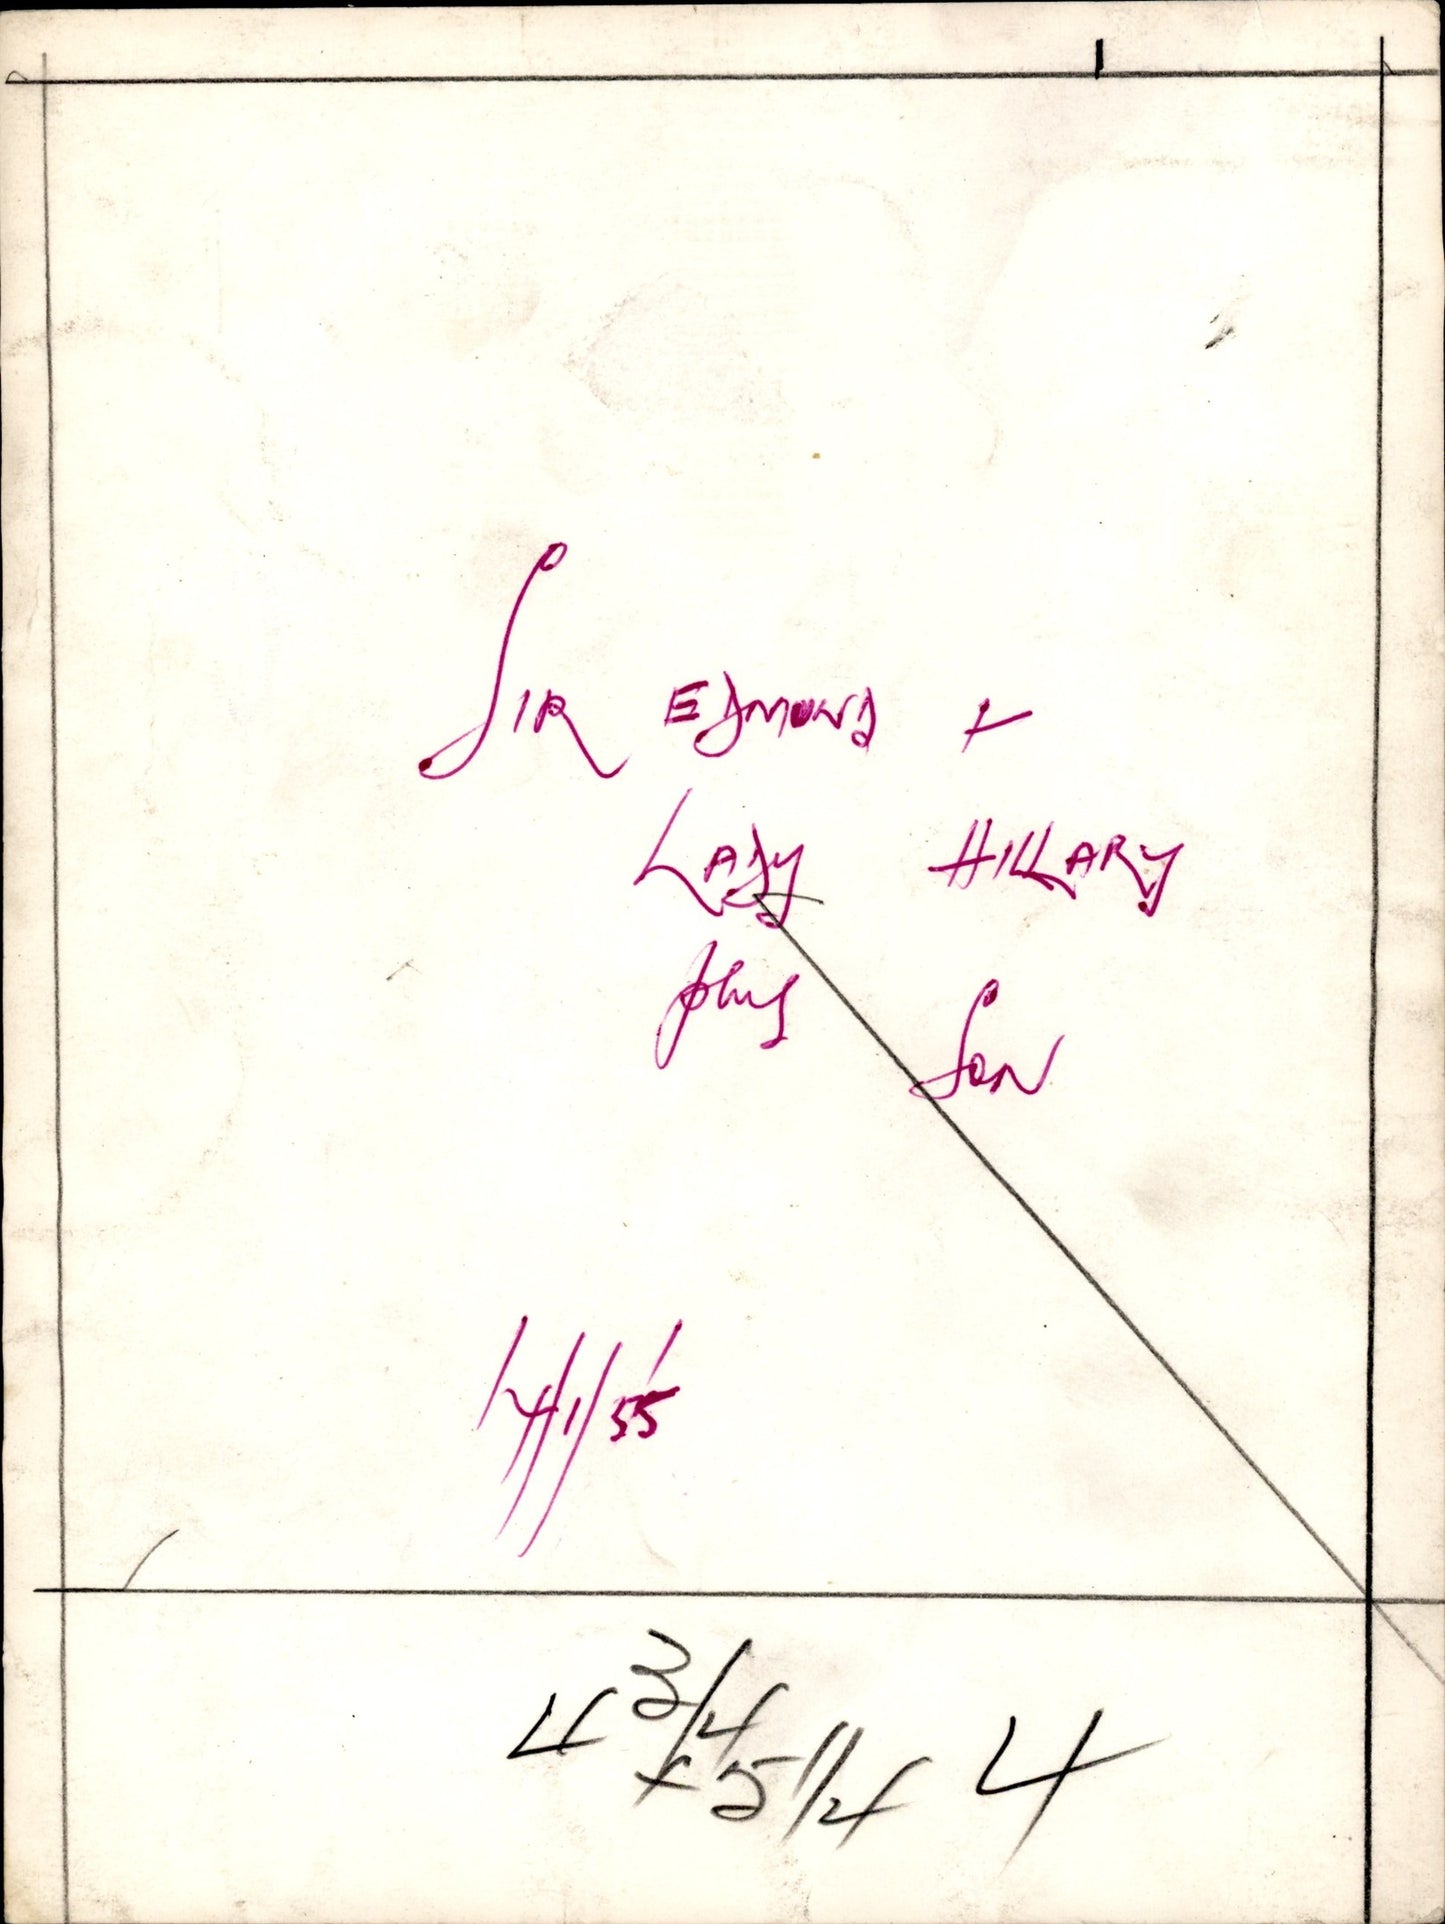 SIR EDMOND +
LADY HILLARY
plus SON
14/1/55
4 3/4
x 5 1/4 4